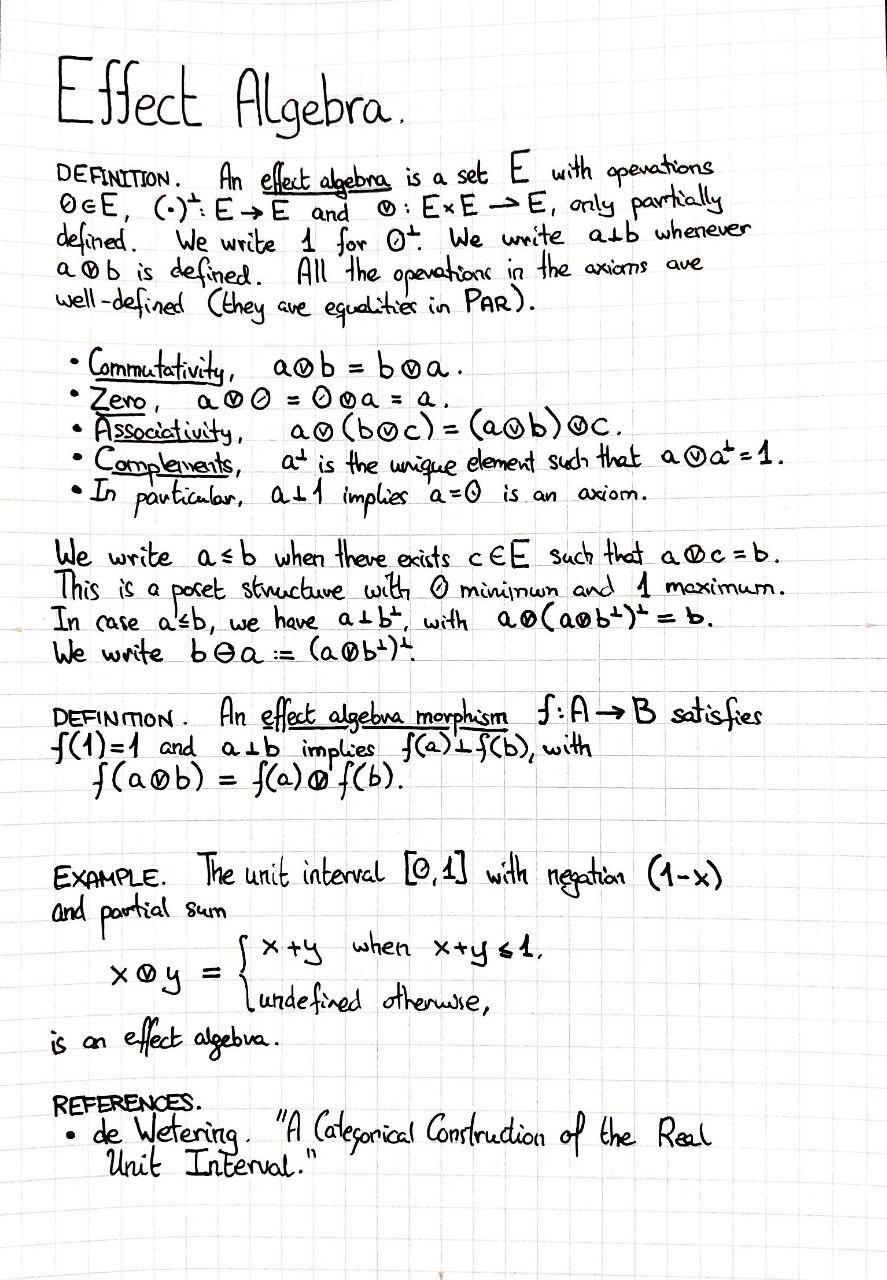 Effect Algebra.
DEFINITION. An effect algebra is a set E with operations
0∈E, (·)⊥: E → E and ⊻: E×E → E, only partially
defined. We write 1 for 0⊥. We write a⊥b whenever
a ⊻ b is defined. All the operations in the axioms are
well-defined (they are equalities in PAR).
• Commutativity, a⊻b = b⊻a.
• Zero, a⊻0 = 0⊻a = a.
• Associativity, a⊻(b⊻c) = (a⊻b)⊻c.
• Complements, a⊥ is the unique element such that a⊻a⊥=1.
• In particular, a⊥1 implies a=0 is an axiom.
We write a≤b when there exists c∈E such that a⊻c=b.
This is a poset structure with 0 minimum and 1 maximum.
In case a≤b, we have a⊥b⊥, with a⊻(a⊻b⊥)⊥ = b.
We write b⊖a := (a⊻b⊥)⊥.
DEFINITION. An effect algebra morphism f:A→B satisfies
f(1)=1 and a⊥b implies f(a)⊥f(b), with
f(a⊻b) = f(a)⊻f(b).
EXAMPLE. The unit interval [0,1] with negation (1-x)
and partial sum
x⊻y = { x+y when x+y≤1,
undefined otherwise,
is an effect algebra.
REFERENCES.
• de Wetering. "A Categorical Construction of the Real
Unit Interval."